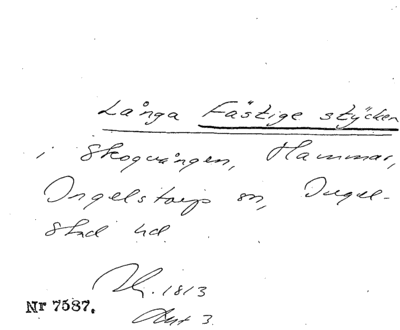 Långa Fästige stycken
i Skogvången, Hammar,
Ingelstorp sn, Ingel-
stad hd
1813
Akt 3.
Nr 7587.